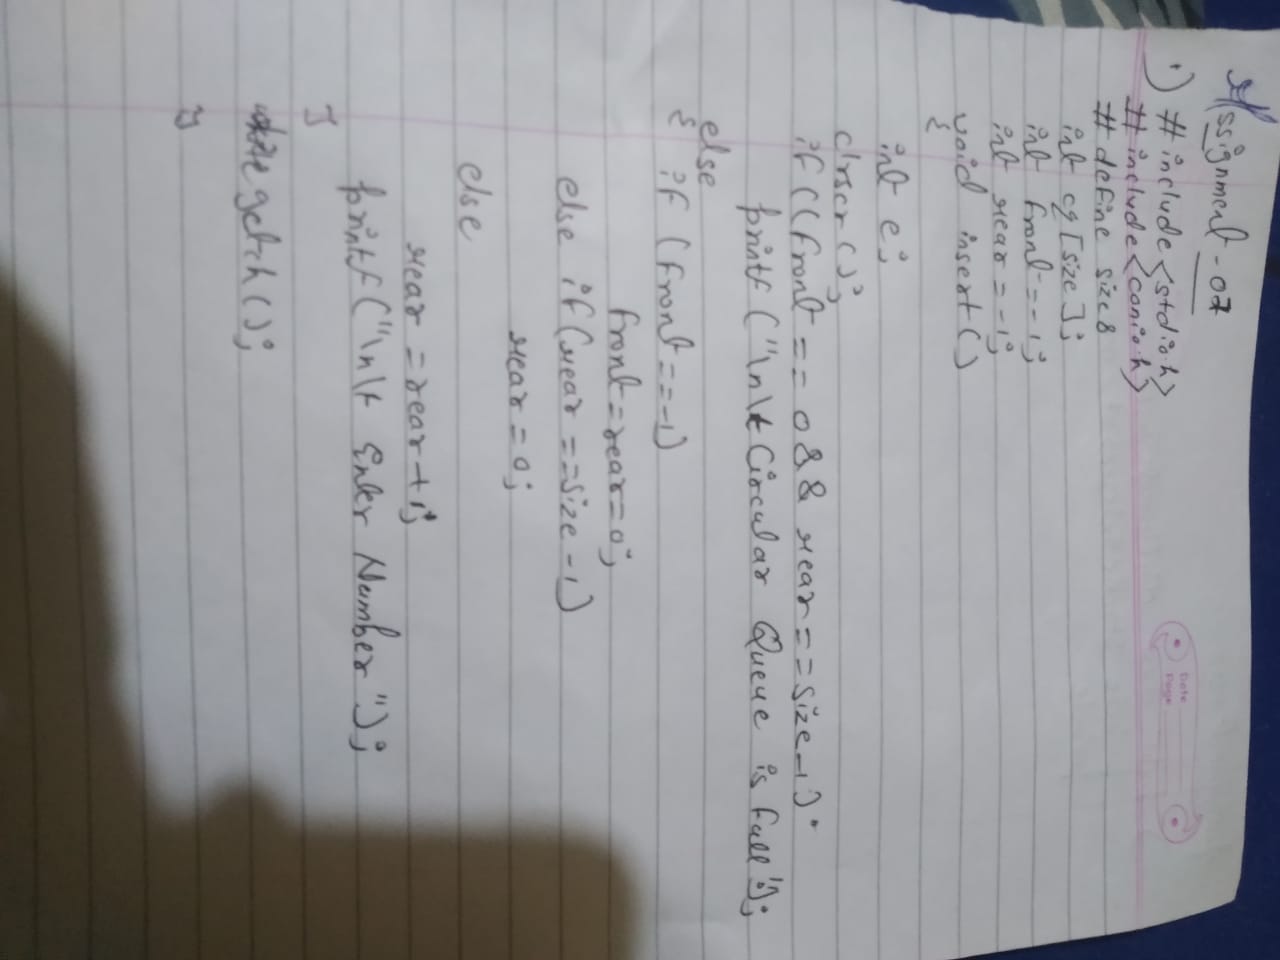 Assignment - 07
1) # include <stdio.h>
# include <conio.h>
# define size 8
int cq [size];
int front = -1;
int rear = -1;
void insert ()
{
int e;
clrscr ();
if ((front == 0 && rear == size-1)
printf ("\n\t Circular Queue is full");
else
{ if (front == -1)
front = rear = 0;
else if (rear == size -1)
rear = 0;
else
rear = rear + 1;
printf ("\n\t Enter Number");
}
getch ();
}
Date
Page